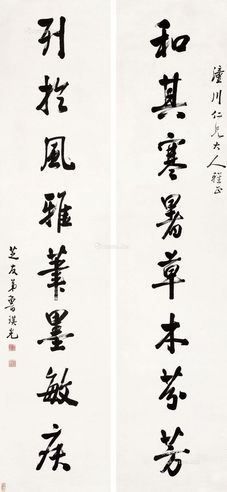 潼川仁兄大人雅正
和其寒暑草木芬芳
列於風雅筆墨敏疾
芝友弟魯琪光